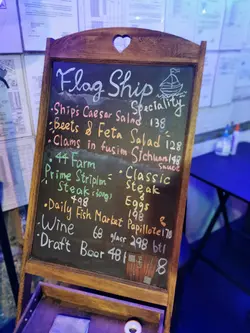 Flag Ship
Speciality
• Ships Caesar Salad 138
• Beets & Feta Salad 128
• Clams in fusim Sichuan 148
sauce
• 44 Farm
Prime Striploin
Steak (300g)
498
• Classic
Steak
&
Eggs
198
• Daily Fish Market Papillote 178
• Wine 68 glass 298 btl
• Draft Beer 48